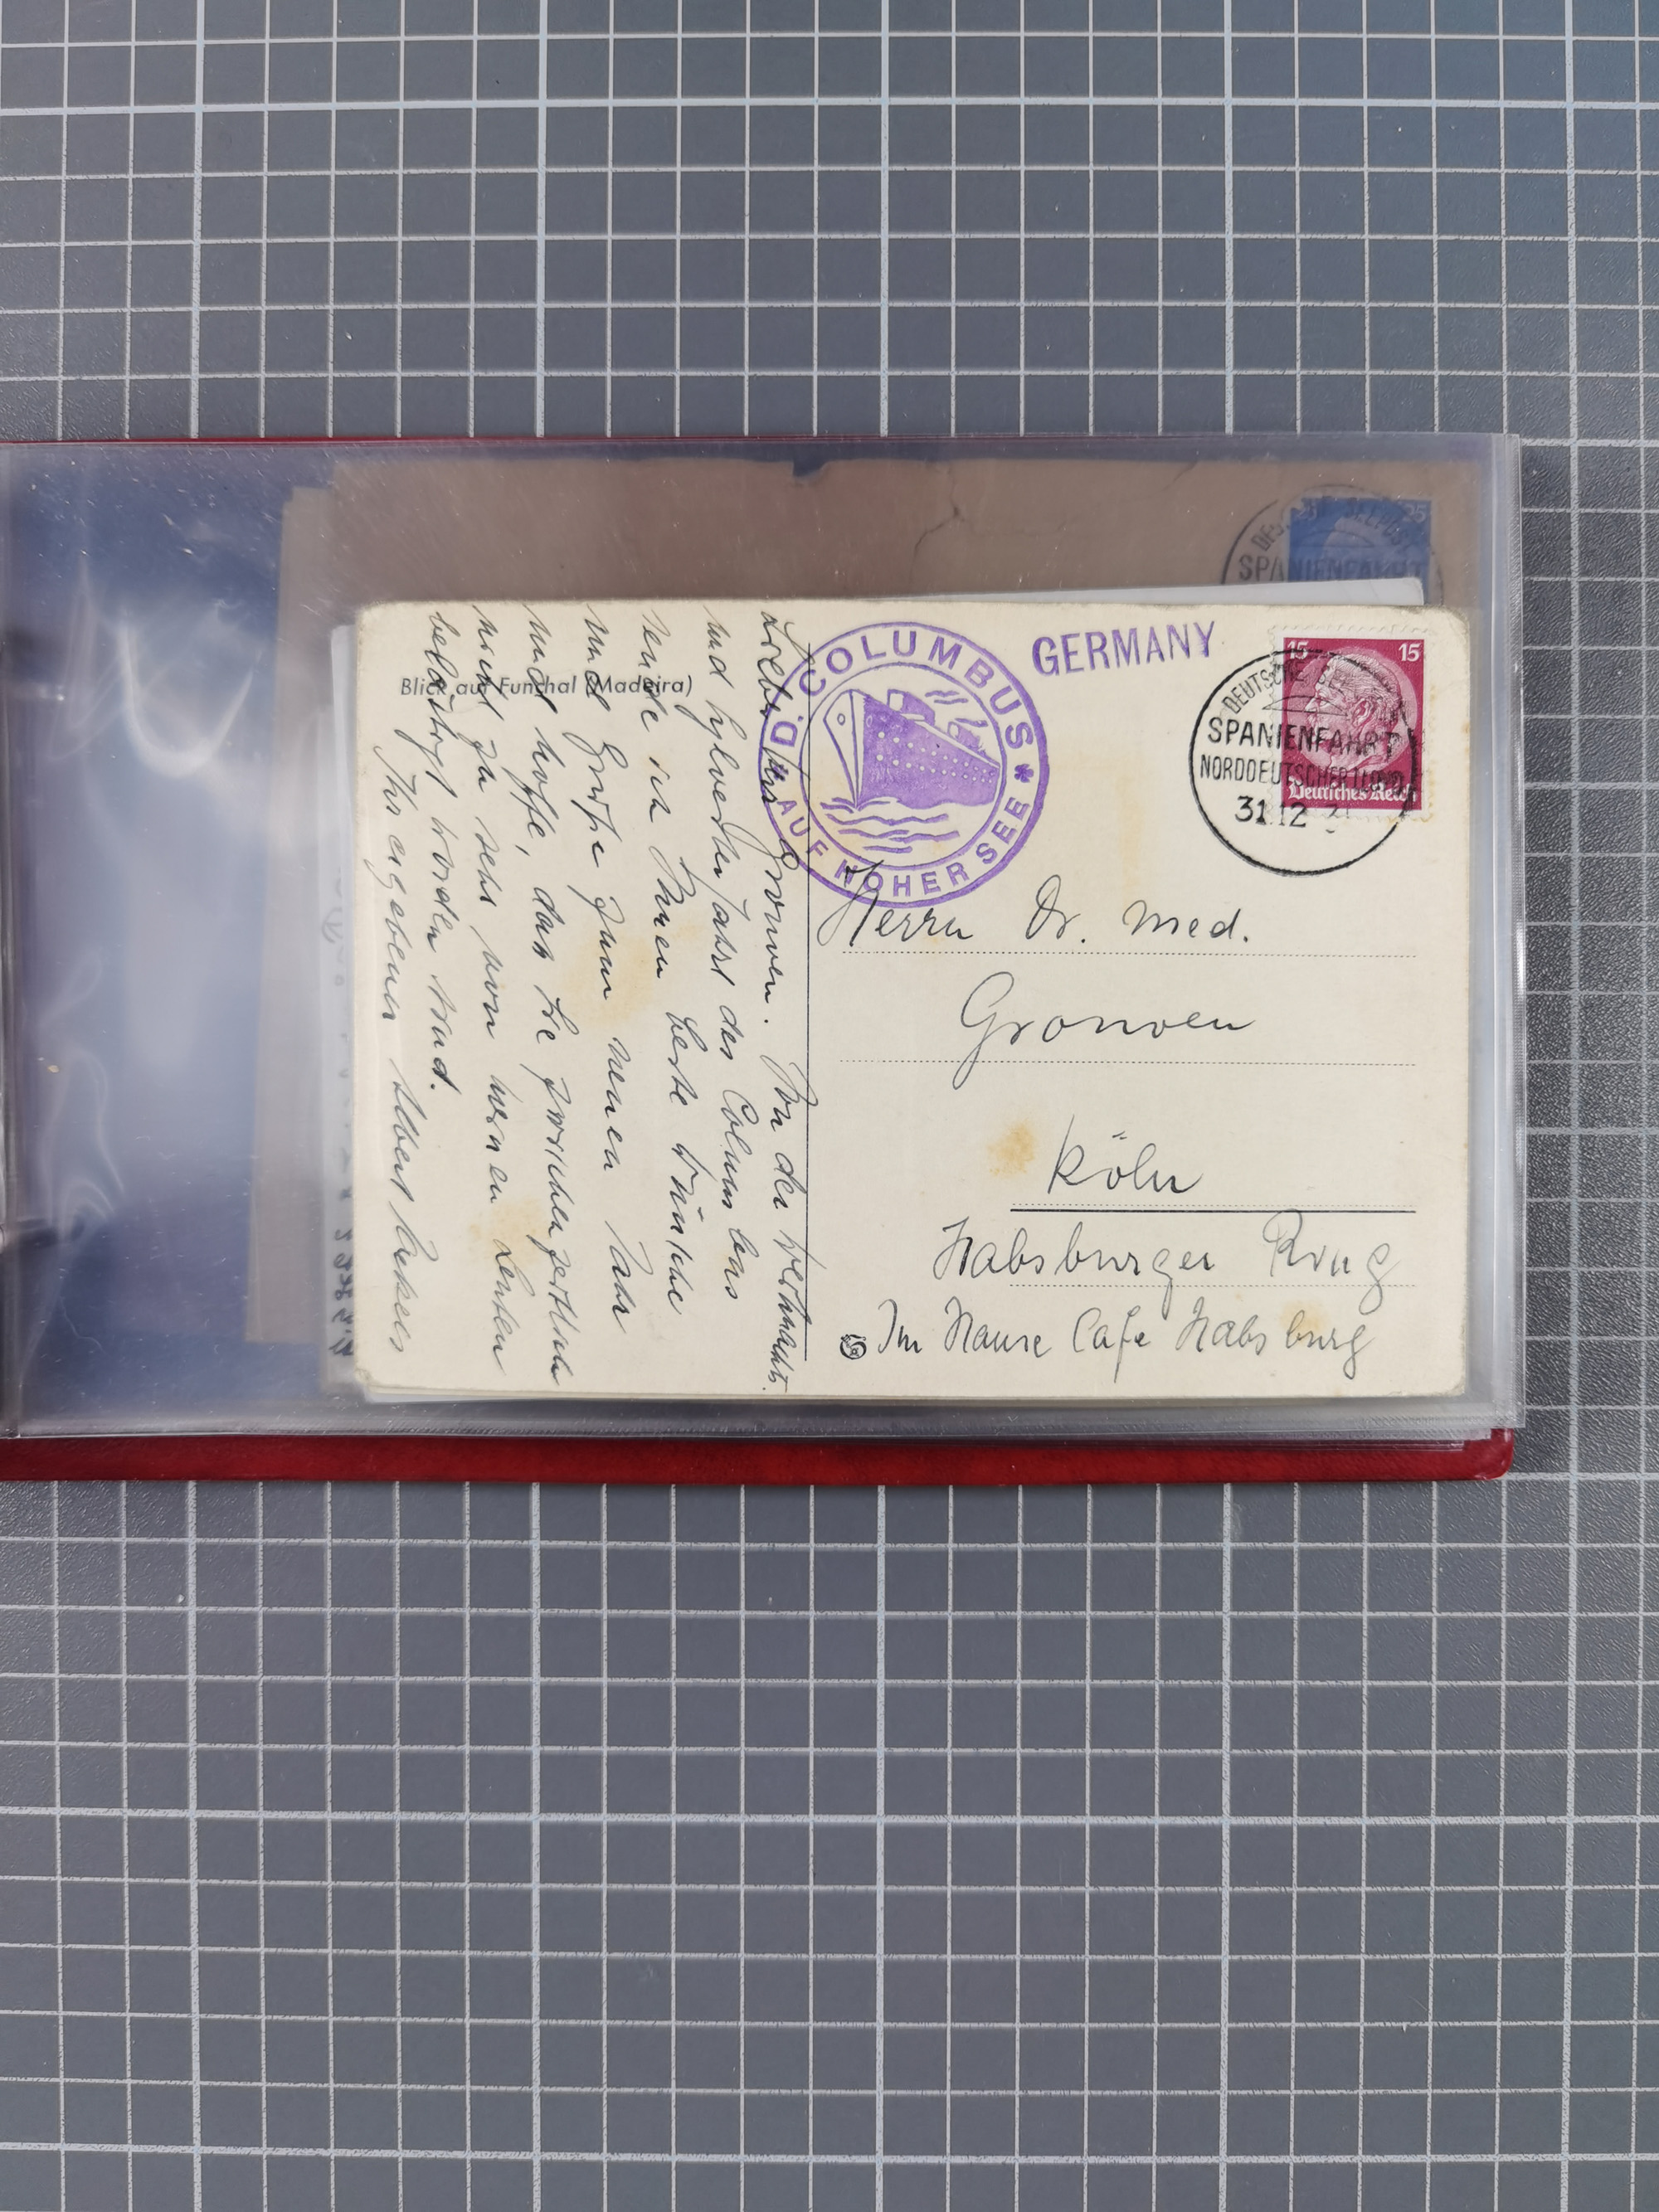 Blick auf Funchal (Madeira)
D. COLUMBUS
AUF HOHER SEE
GERMANY
15 15
Deutsches Reich
DEUTSCHE SE
SPANIENFAHRT
NORDDEUTSCHER LLOYD
31.12
Herrn Dr. med.
Gronven
Köln
Habsburger Ring
Im Hause Cafe Habsburg
Lieber Gronven. Von der Weihnachts
und Sylvesterfahrt des Columbus
sende ich Ihnen beste Wünsche
und Grüße zum neuen Jahr
und hoffe, dass Sie zwischenzeitlich
nicht zu sehr von meinen Leuten
belästigt worden sind.
Ihr ergebener Albert
25
SEEPOST
SPANIENFAHRT